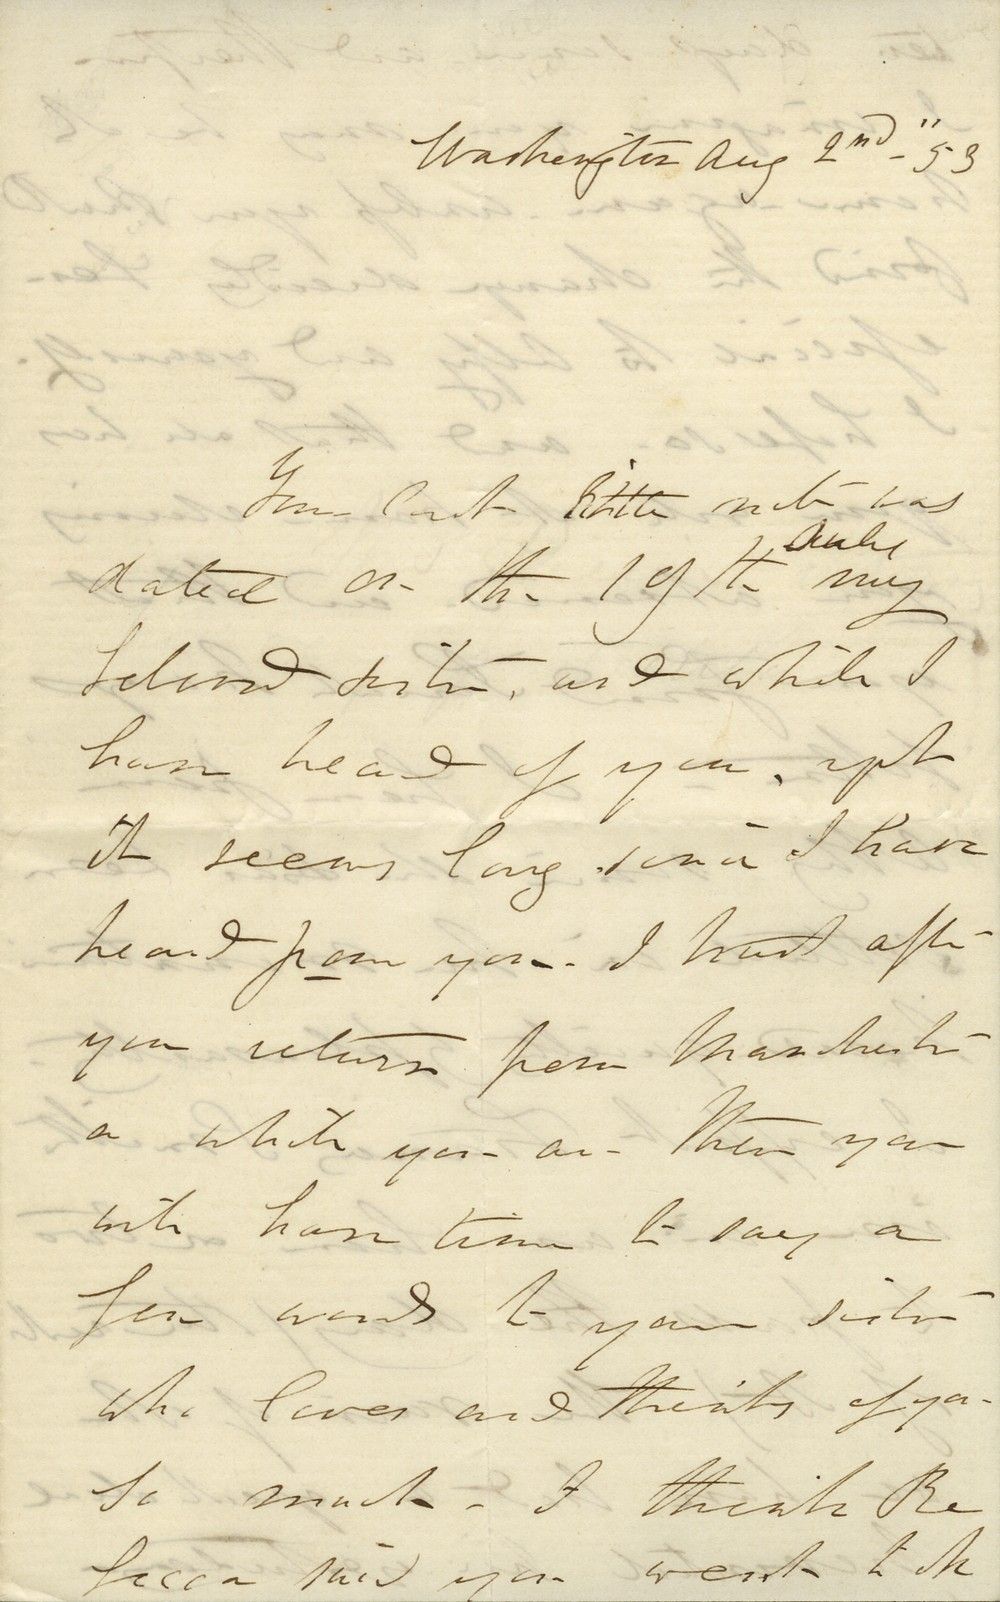 Washington Aug 2nd - "53
Your last little note was
dated on the 19th my
beloved sister, and while I
have heard of you, yet
it seems long since I have
heard from you - I trust after
you return from Manchester
or while you are there you
will have time to say a
few words to your sister
who loves and thinks of you
so much - I think Re
becca said you went to the